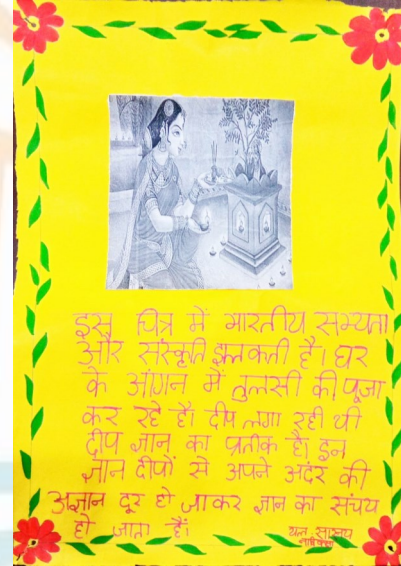 इस चित्र में भारतीय सभ्यता
और संस्कृति झलकती है। घर
के आंगन में तुलसी की पूजा
कर रहे हैं। दीप लगा रही थी
दीप ज्ञान का प्रतीक है। इन
ज्ञान दीपों से अपने अदंर की
अज्ञान दूर हो जाकर ज्ञान का संचय
हो जाता हैं।